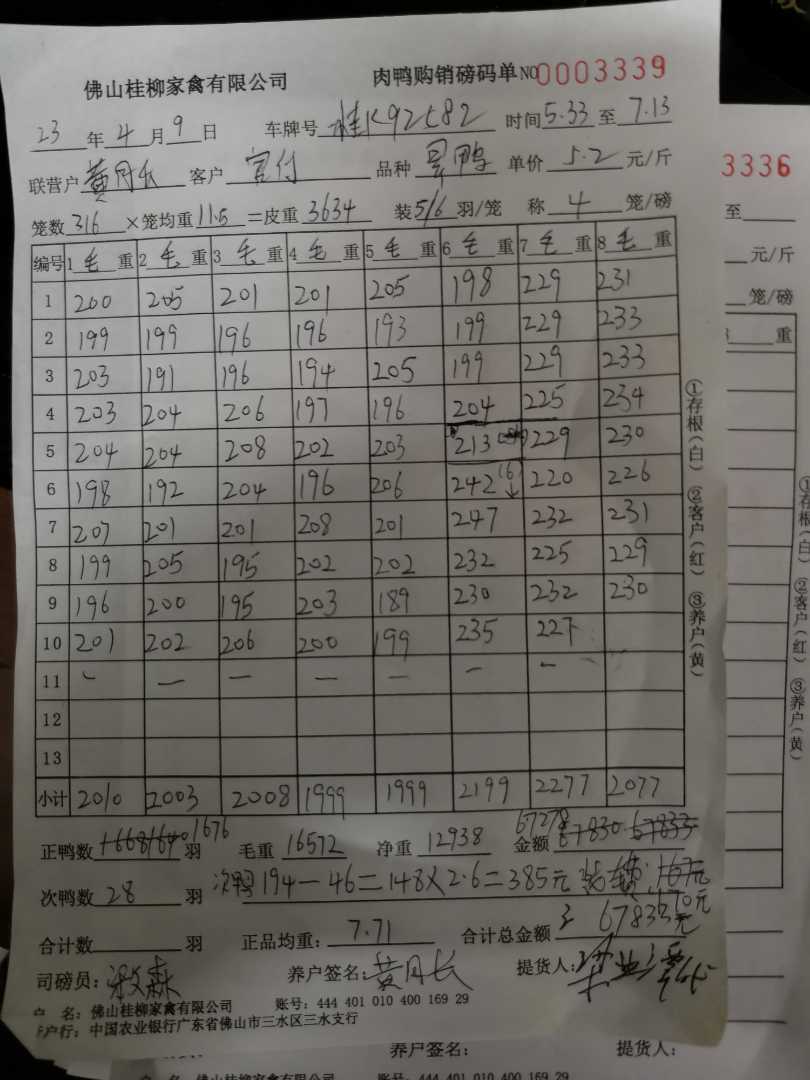 佛山桂柳家禽有限公司 肉鸭购销磅码单 NO 0003339
23 年 4 月 9 日 车牌号 桂K92582 时间 5.33 至 7.13
联营户 黄月长 客户 官付 品种 鸭 单价 5.2 元/斤
笼数 316 ×笼均重 11.5 =皮重 3634 装 5/6 羽/笼 称 4 笼/磅
编号 1 毛 重 2 毛 重 3 毛 重 4 毛 重 5 毛 重 6 毛 重 7 毛 重 8 毛 重
1 200 205 201 201 205 198 229 231
2 199 199 196 196 193 199 229 233
3 203 191 196 194 205 199 229 233
4 203 204 206 197 196 204 225 234
5 204 204 208 202 203 213 229 230
6 198 192 204 196 206 242 (6) ↓ 220 226
7 207 201 201 208 201 247 232 231
8 199 205 195 202 202 232 225 229
9 196 200 195 203 189 230 232 230
10 201 202 206 200 199 235 227
11 — — — — — — —
12
13
小计 2010 2003 2008 1999 1999 2199 2277 2077
正鸭数 1676 羽 毛重 16572 净重 12938 金额 67278
次鸭数 28 羽 次鸭 194-46=148×2.6=385元
合计数 羽 正品均重: 7.71 合计总金额
司磅员: 养户签名: 黄月长 提货人:
户 名: 佛山桂柳家禽有限公司 账号: 444 401 010 400 169 29
户行: 中国农业银行广东省佛山市三水区三水支行
①存根(白) ②客户(红) ③养户(黄)
3336
至
元/斤
笼/磅
重
①存根(白) ②客户(红) ③养户(黄)
养户签名: 提货人:
户 名: 佛山桂柳家禽有限公司 账号: 444 401 010 400 169 29